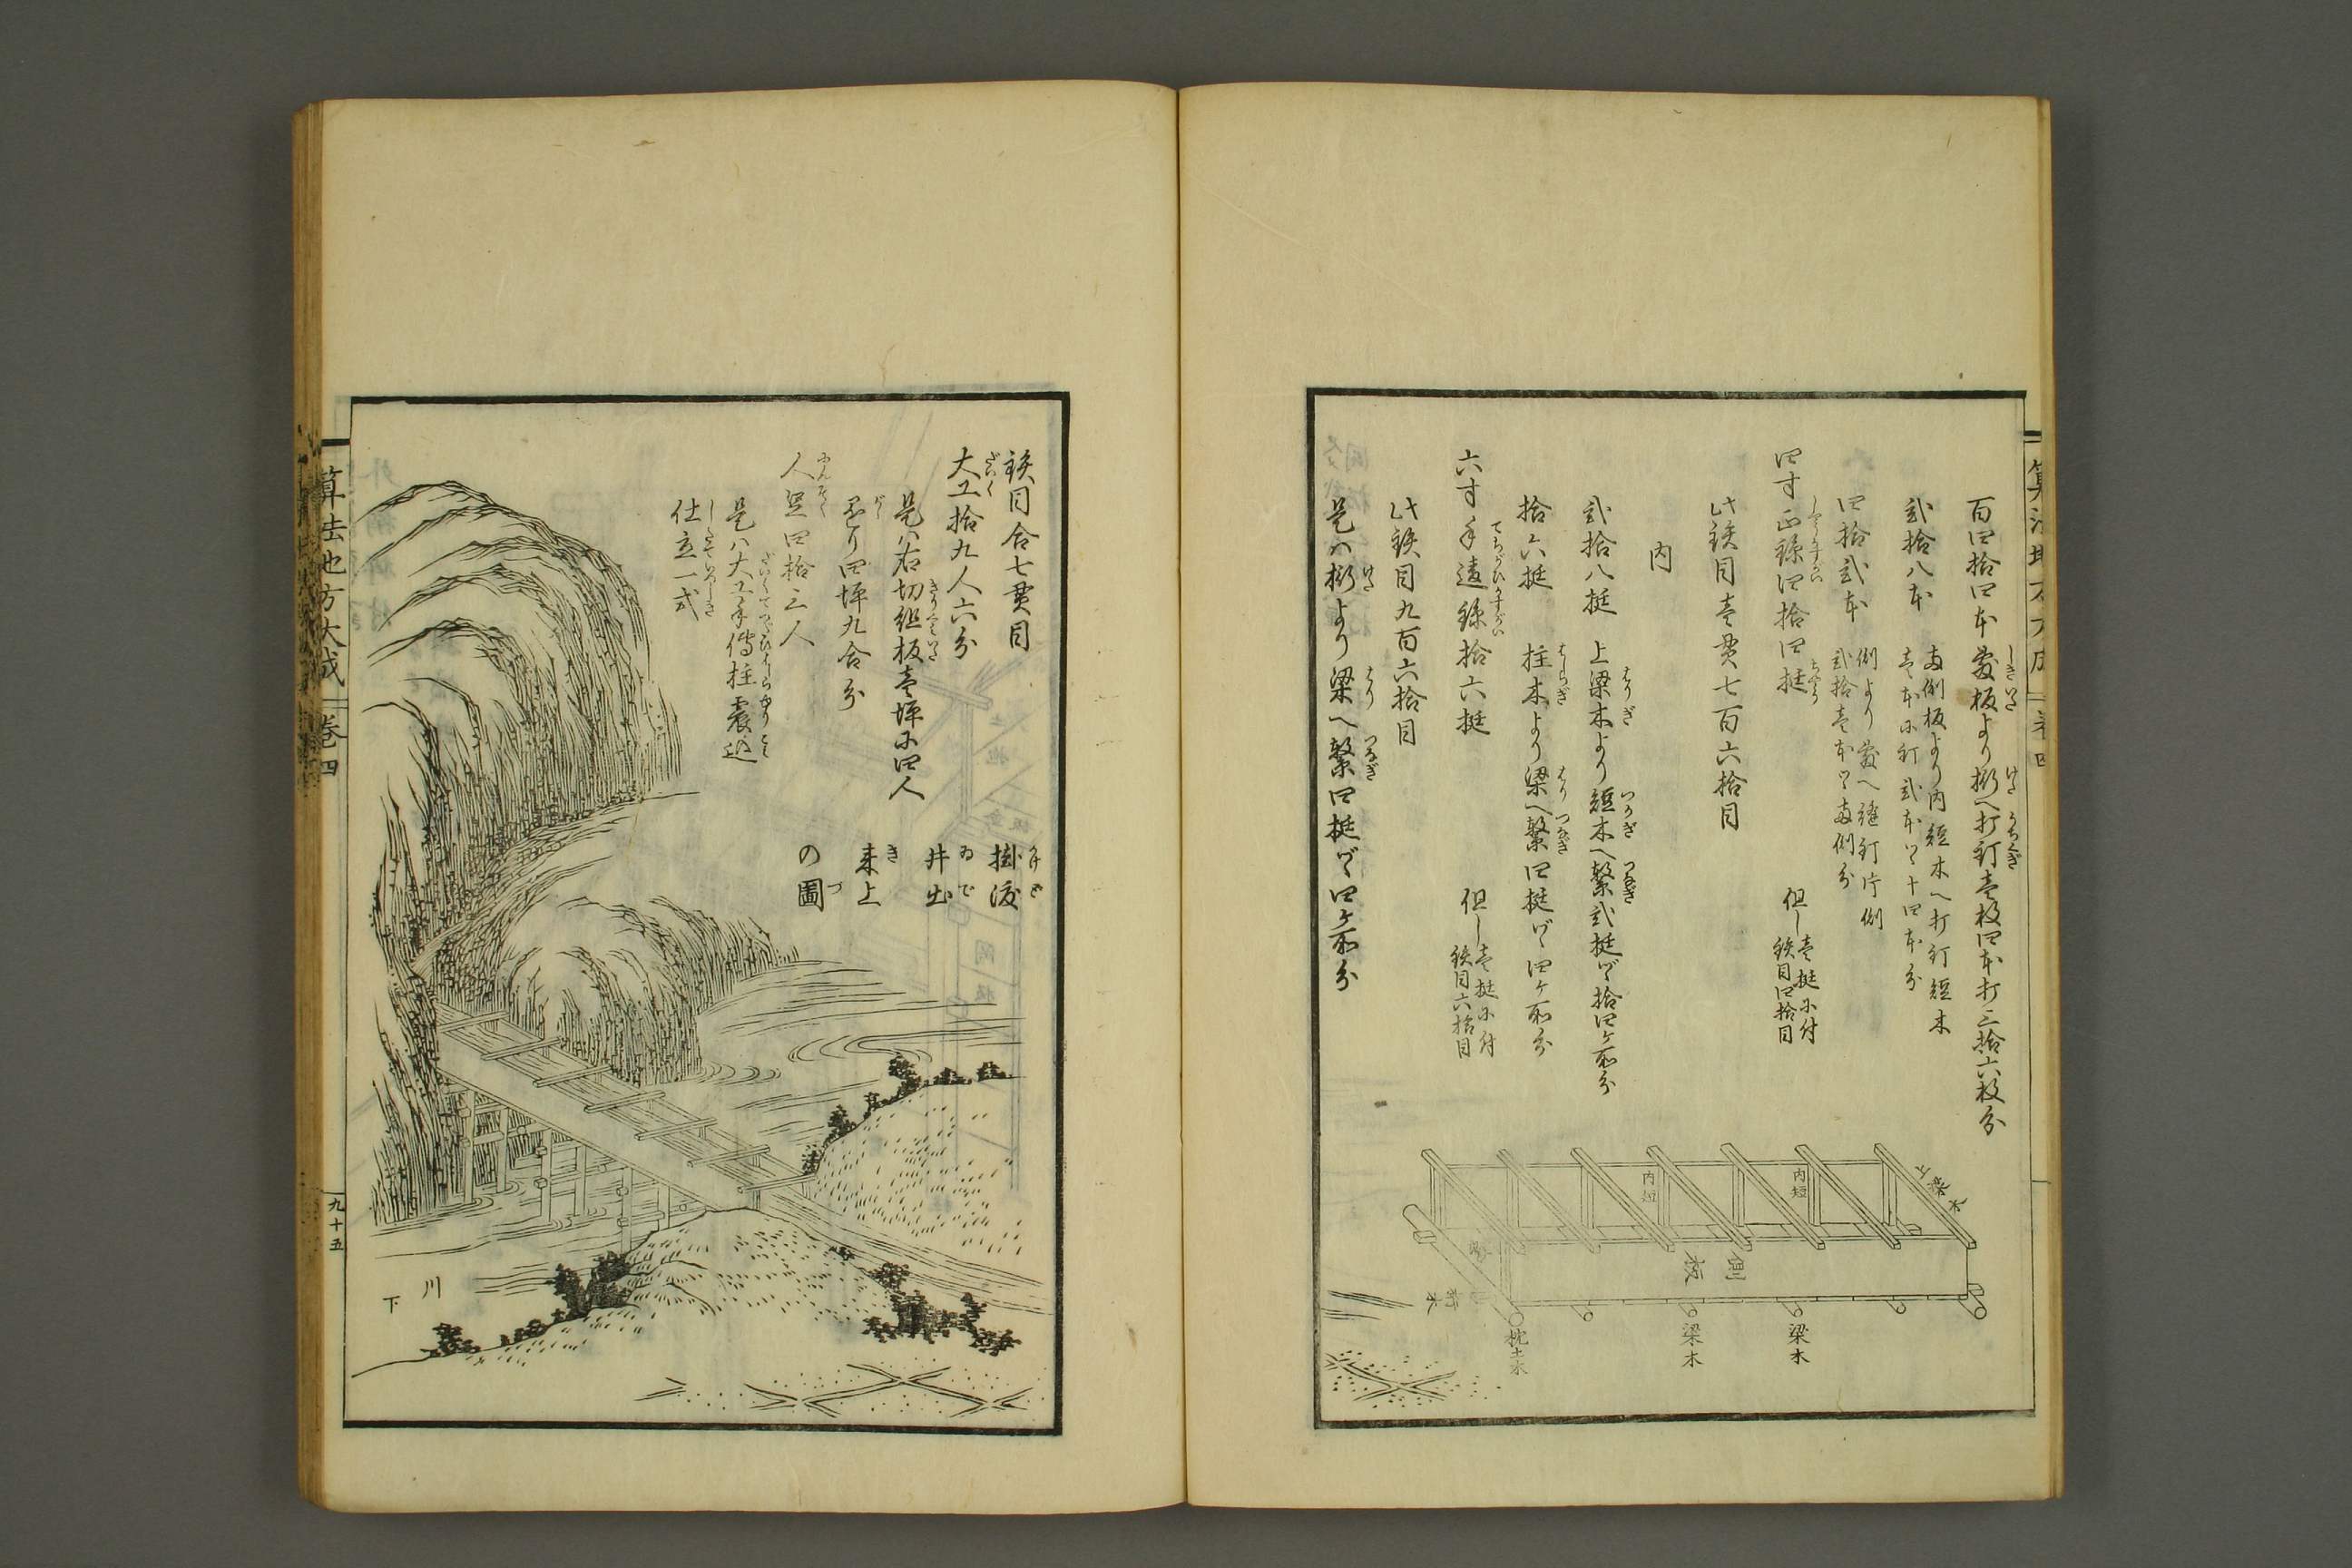 百四拾四本 敷板より桁へ打釘壱枚四本打三拾六枚分
弐拾八本 両側板より内短木へ打釘短木
壱本ニ釘弐本ツヽ十四本分
四拾弐本 側より敷へ縫釘片側
弐拾壱本ツヽ両側分
四寸正鎹四拾四挺 但し壱挺ニ付
鉄目四拾目
此鉄目壱貫七百六拾目
内
弐拾八挺 上梁木より短木へ繋弐挺ヅヽ拾四ケ所分
拾六挺 柱木より梁へ繋四挺ヅヽ四ケ所分
六寸手違鎹拾六挺 但し壱挺ニ付
鉄目六拾目
此鉄目九百六拾目
是ハ桁より梁へ繋四挺ヅヽ四ケ所分
上梁木
内短
内短
側板
桁木
枕土木
梁木
梁木
鉄目合七貫目
大工拾九人六分
是ハ右切組板壱坪ニ四人
がゝり四坪九合分
人足四拾三人
是ハ大工手傳柱震込
仕立一式
掛渡
井出
来上
の圖
川下
算法地方大成
巻四
九十五